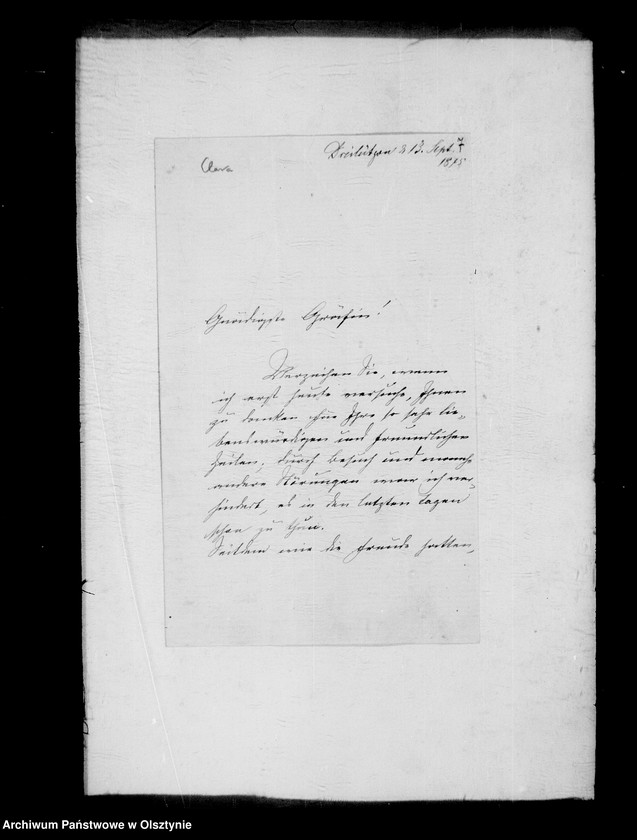 Clara
Dreilützow d 13. Sept.
Gnädigste Gräfin!
Verzeihen Sie, wenn
ich erst heute versuche, Ihnen
zu danken für Ihre so sehr lie-
benswürdigen und freundlichen
Zeilen, durch Besuch und manche
andere Störungen war ich ver-
hindert, es in den letzten Tagen
schon zu thun.
Seitdem wir die Freude hatten,
Archiwum Państwowe w Olsztynie